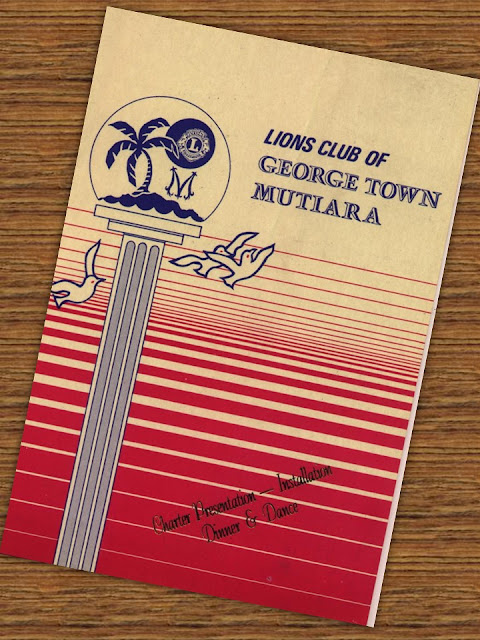 LIONS CLUB OF
GEORGE TOWN
MUTIARA
L
M
Charter Presentation — Installation
Dinner & Dance